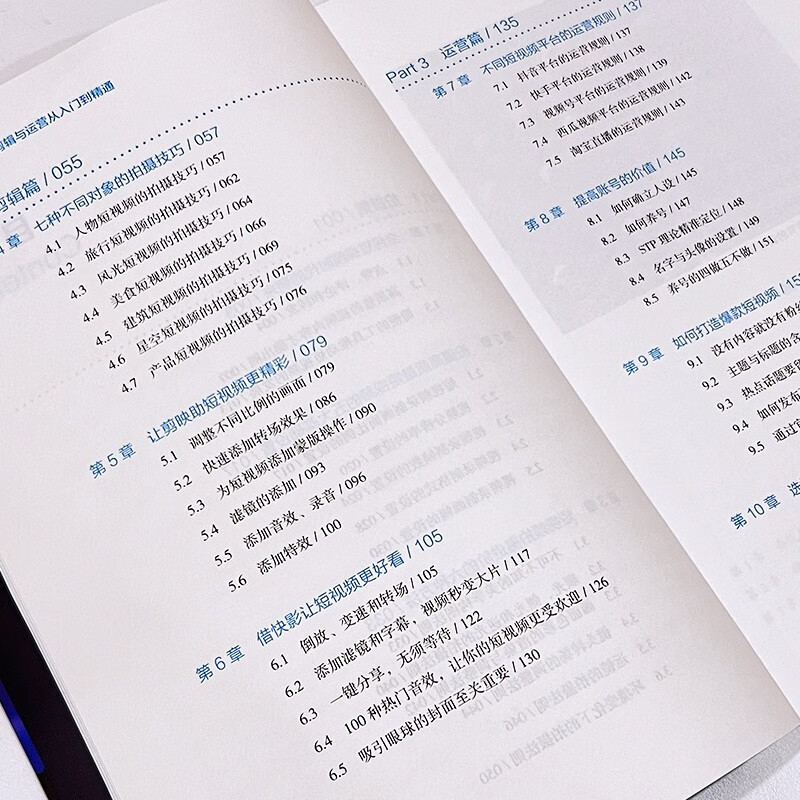 辑与运营从入门到精通
剪辑篇 / 055
章 七种不同对象的拍摄技巧 / 057
4.1 人物短视频的拍摄技巧 / 057
4.2 旅行短视频的拍摄技巧 / 062
4.3 风光短视频的拍摄技巧 / 064
4.4 美食短视频的拍摄技巧 / 066
4.5 建筑短视频的拍摄技巧 / 069
4.6 星空短视频的拍摄技巧 / 075
4.7 产品短视频的拍摄技巧 / 076
第 5 章 让剪映助短视频更精彩 / 079
5.1 调整不同比例的画面 / 079
5.2 快速添加转场效果 / 086
5.3 为短视频添加蒙版操作 / 090
5.4 滤镜的添加 / 093
5.5 添加音效、录音 / 096
5.6 添加特效 / 100
第 6 章 借快影让短视频更好看 / 105
6.1 倒放、变速和转场 / 105
6.2 添加滤镜和字幕，视频秒变大片 / 117
6.3 一键分享，无须等待 / 122
6.4 100 种热门音效，让你的短视频更受欢迎 / 126
6.5 吸引眼球的封面至关重要 / 130
Part 3 运营篇 / 135
第 7 章 不同短视频平台的运营规则 / 137
7.1 抖音平台的运营规则 / 137
7.2 快手平台的运营规则 / 138
7.3 视频号平台的运营规则 / 139
7.4 西瓜视频平台的运营规则 / 142
7.5 淘宝直播的运营规则 / 143
第 8 章 提高账号的价值 / 145
8.1 如何确立人设 / 145
8.2 如何养号 / 147
8.3 STP 理论精准定位 / 148
8.4 名字与头像的设置 / 149
8.5 养号的四做五不做 / 151
第 9 章 如何打造爆款短视频 / 15
9.1 没有内容就没有粉丝
9.2 主题与标题的含
9.3 热点话题要
9.4 如何发布
9.5 通过
第 10 章 选